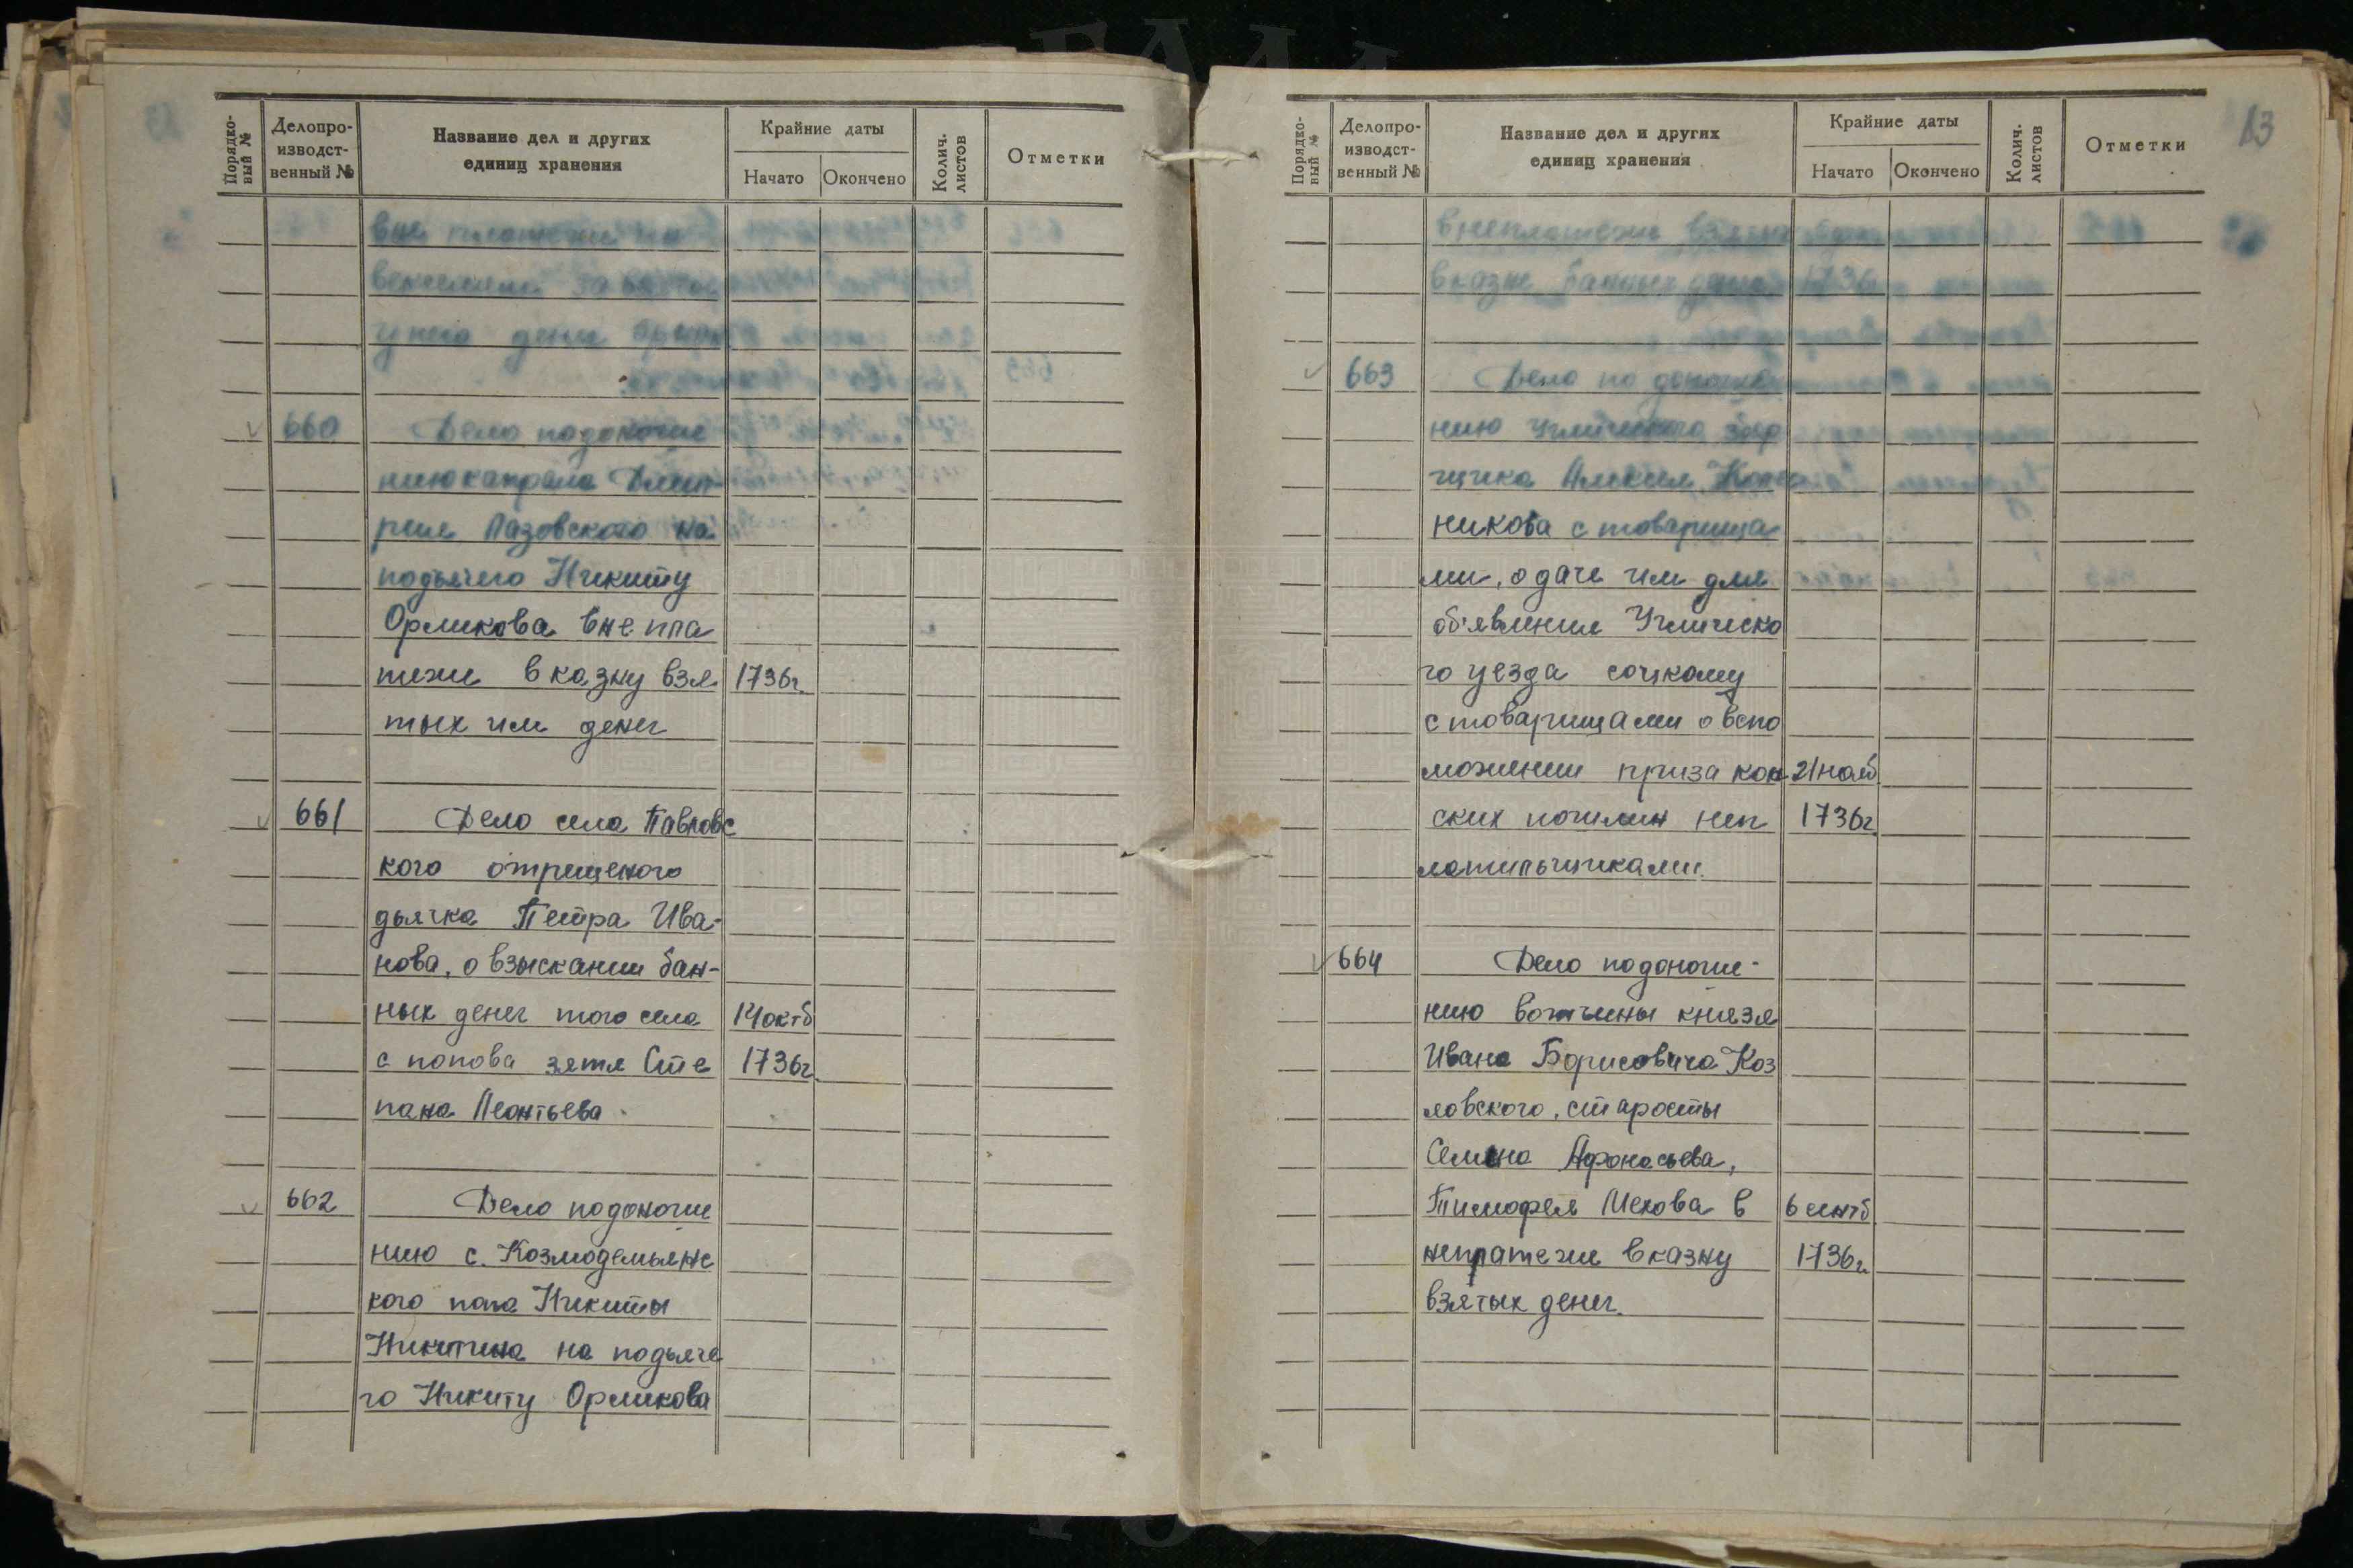 Порядко-
вый №
Делопро-
изводст-
венный №
Название дел и других
единиц хранения
Крайние даты
Начато
Окончено
Колич.
листов
Отметки
вне платежи по
векселям за взятые
у него день
660 Дело подоноше
нию капрала Дмит-
рия Лазовского на
подьячего Никиту
Орликова вне пла
тежи в казну взя 1736г.
тых им денег
661 Дело села Павловс
кого отрешеного
дьячка Петра Ива-
нова, о взыскании бан-
ных денег того села 14 октб
с попова зятя Сте 1736г.
пана Леонтьева.
662 Дело подоноше
нию с. Козмодемьянс
кого попа Никиты
Никитина на подьяче
го Никиту Орликова
13
Порядко-
вый №
Делопро-
изводст-
венный №
Название дел и других
единиц хранения
Крайние даты
Начато
Окончено
Колич.
листов
Отметки
внеплатежи
в казне банных денег 1736
663 Дело по доноше
нию Угличского збор
щика Алексея
никова с товарища
ми, о даче им для
об'явления Угличско
го уезда соцкому
с товарищами о вспо
можении приза кон 21 нояб.
ских пошлин неп 1736г.
лательщиками.
664 Дело подоноше-
нию вотчины князя
Ивана Борисовича Коз
ловского, старосты
Семена Афонасьева,
Тимофея Мехова в 6 сентб.
неплатежи в казну 1736г.
взятых денег.